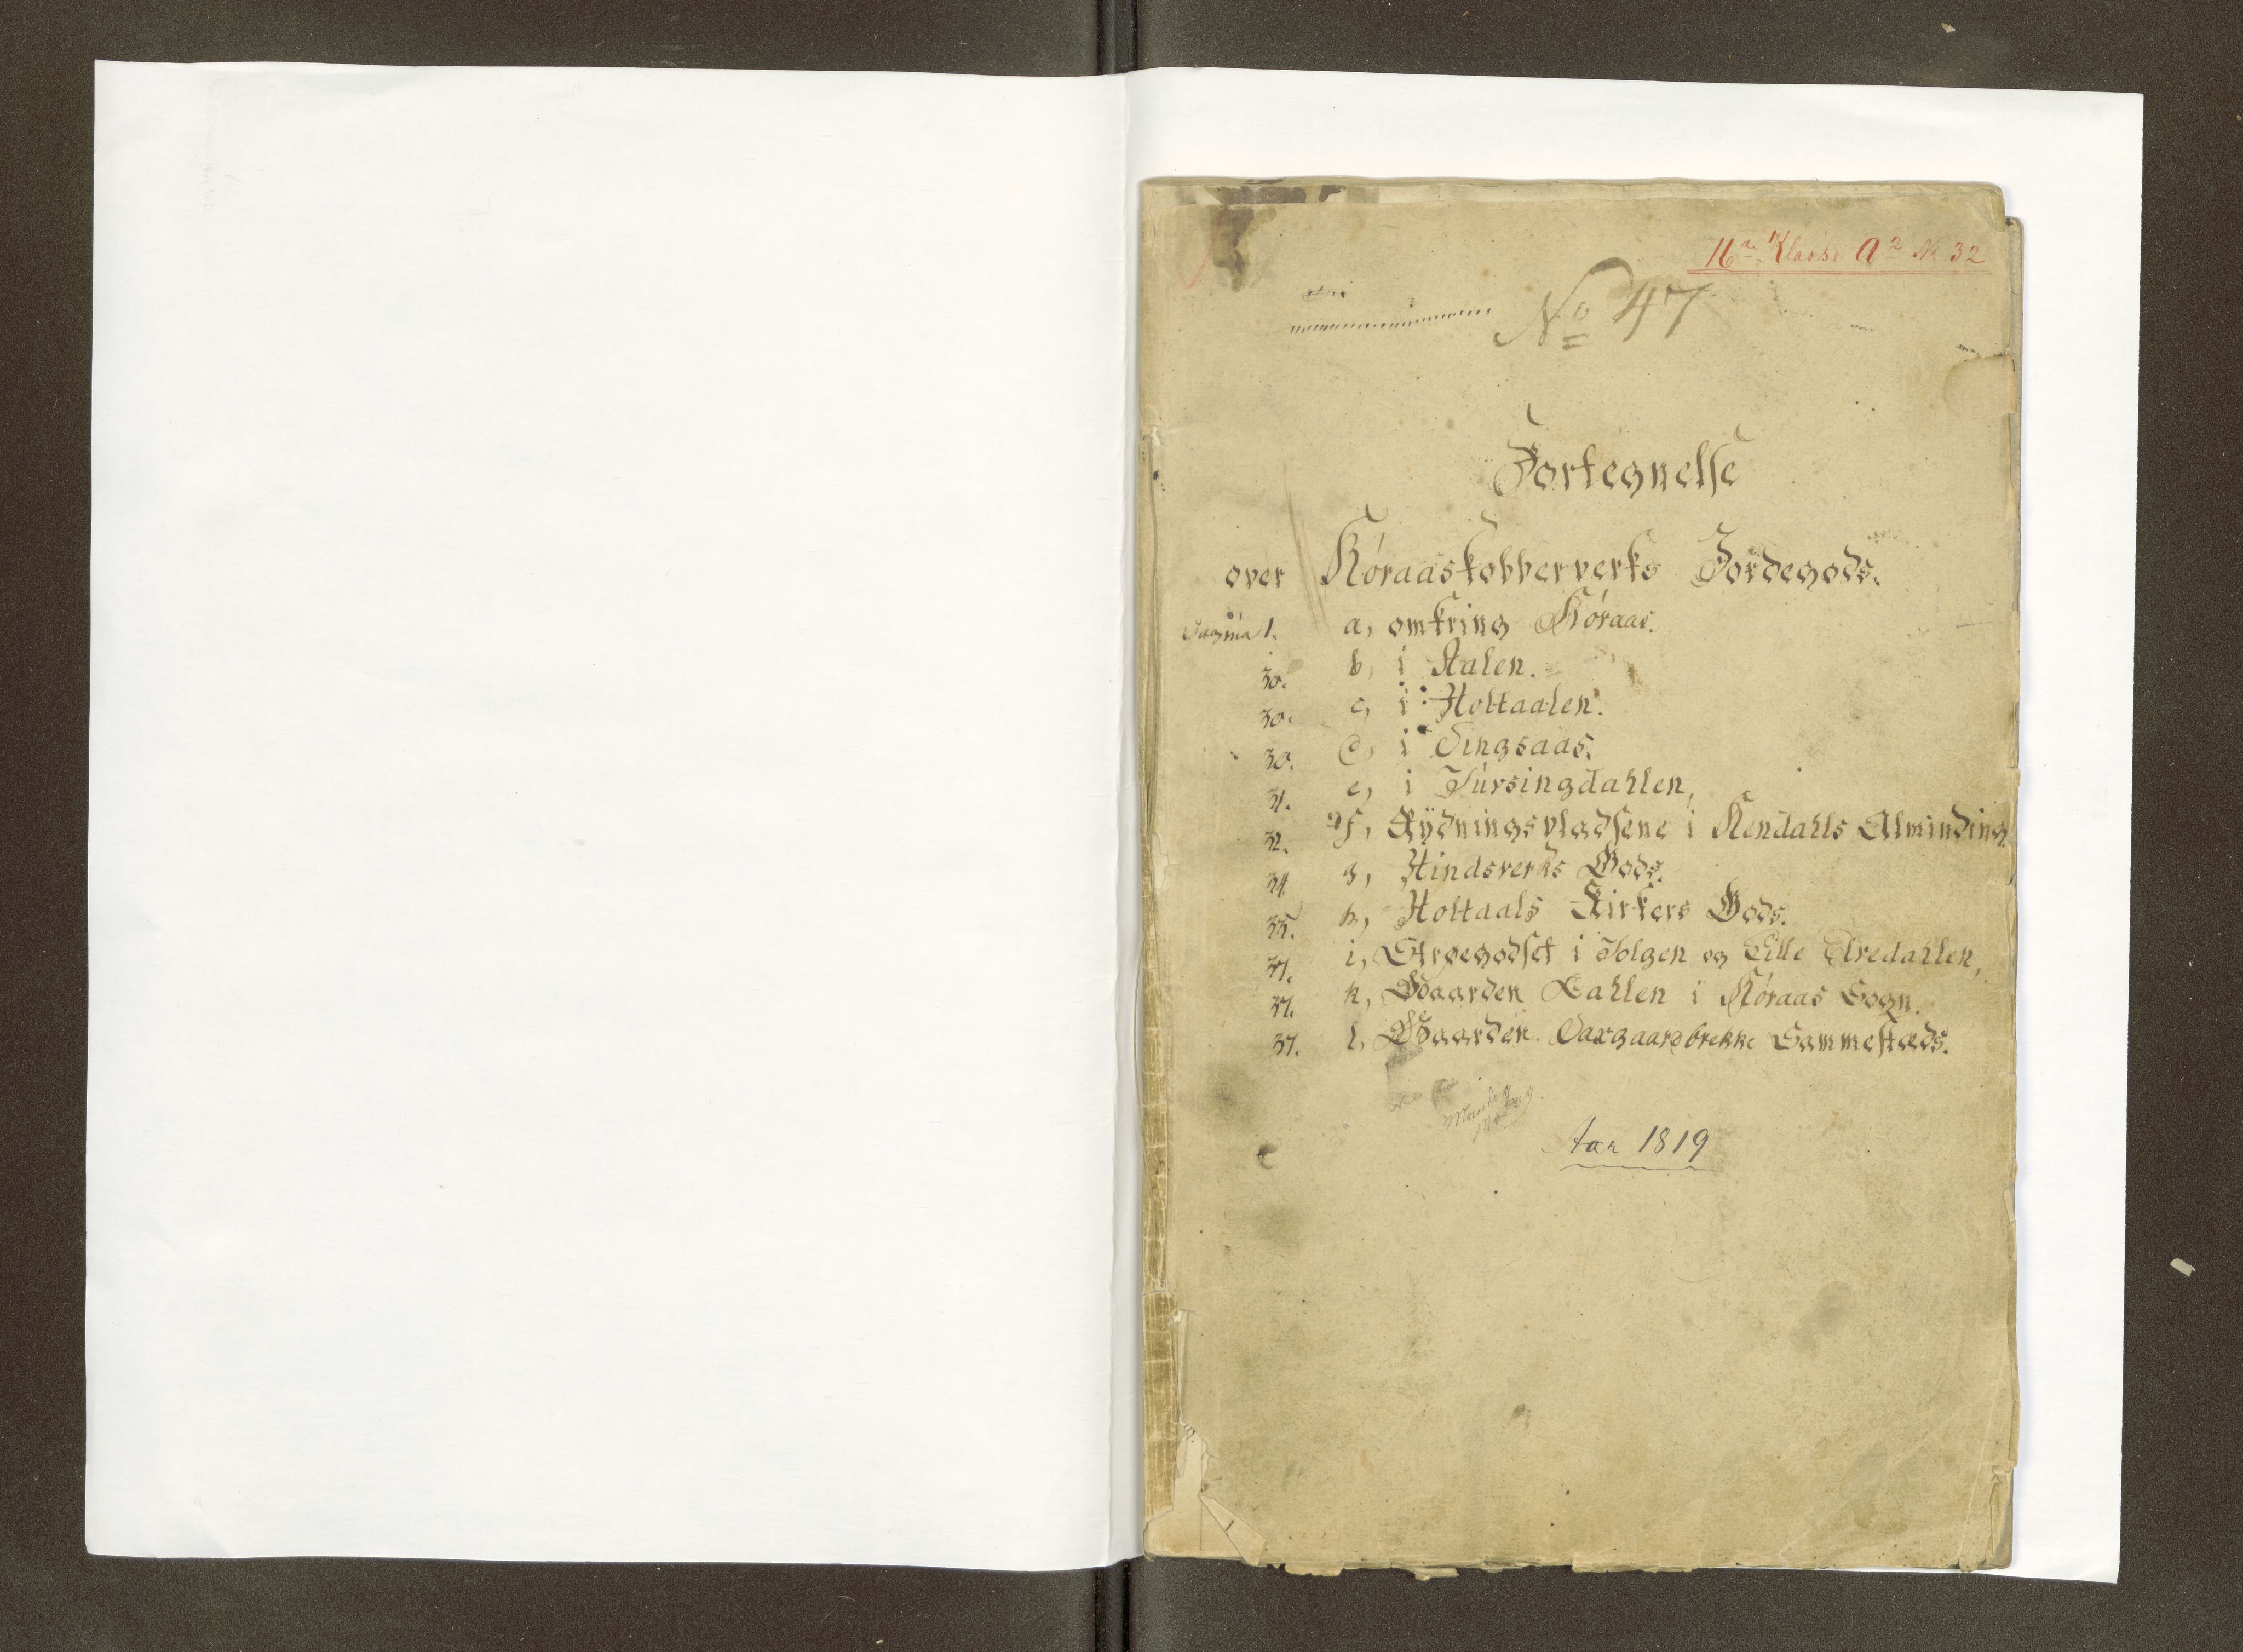 11te Klasse A2 No 32
No 47
Fortegnelse
over Röraaskobberverks Jordegods.
Pagina 1. a, omkring Röraas.
30. b, i Aalen.
30. c, i Holtaalen.
30. d, i Singsaas.
31. e, i Türsingdahlen,
32. f, Rÿdningspladsene i Rendahls Alminding.
34. g, Hindsverks Gods.
35. h, Holtaals Kirkers Gods.
37. i, Arvegodset i Tolgen og Lille Elvedahlen,
37. k, Gaarden Dahlen i Röraas Sogn.
37. l, Gaarden Vaxgaardbrekke Sammesteds.
Aar 1819